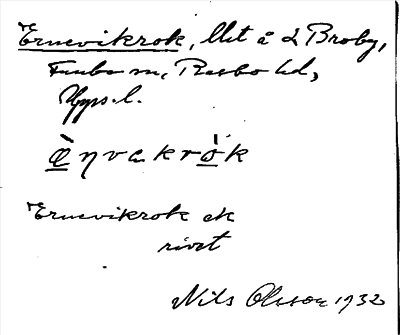 Ernevikrok, Uet å L Broby,
Funbo sn, Rasbo hd,
Upps. l.
è̱ŋvakrò̱k
Ernevikrok ek
rivet
Nils Olsson 1932